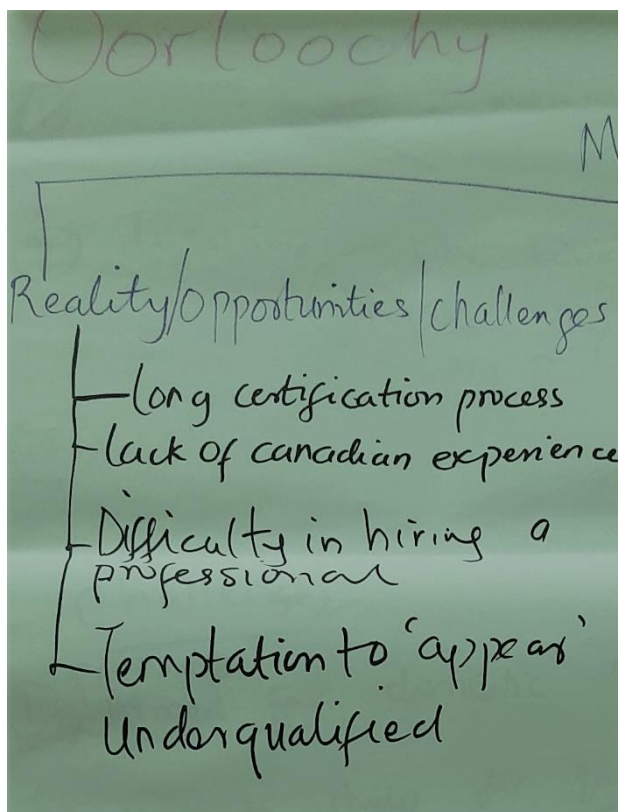 Oorloochy
M
Reality/opportunities/challenges
- long certification process
- lack of canadian experience
- Difficulty in hiring a
professional
- Temptation to 'appear'
Underqualified